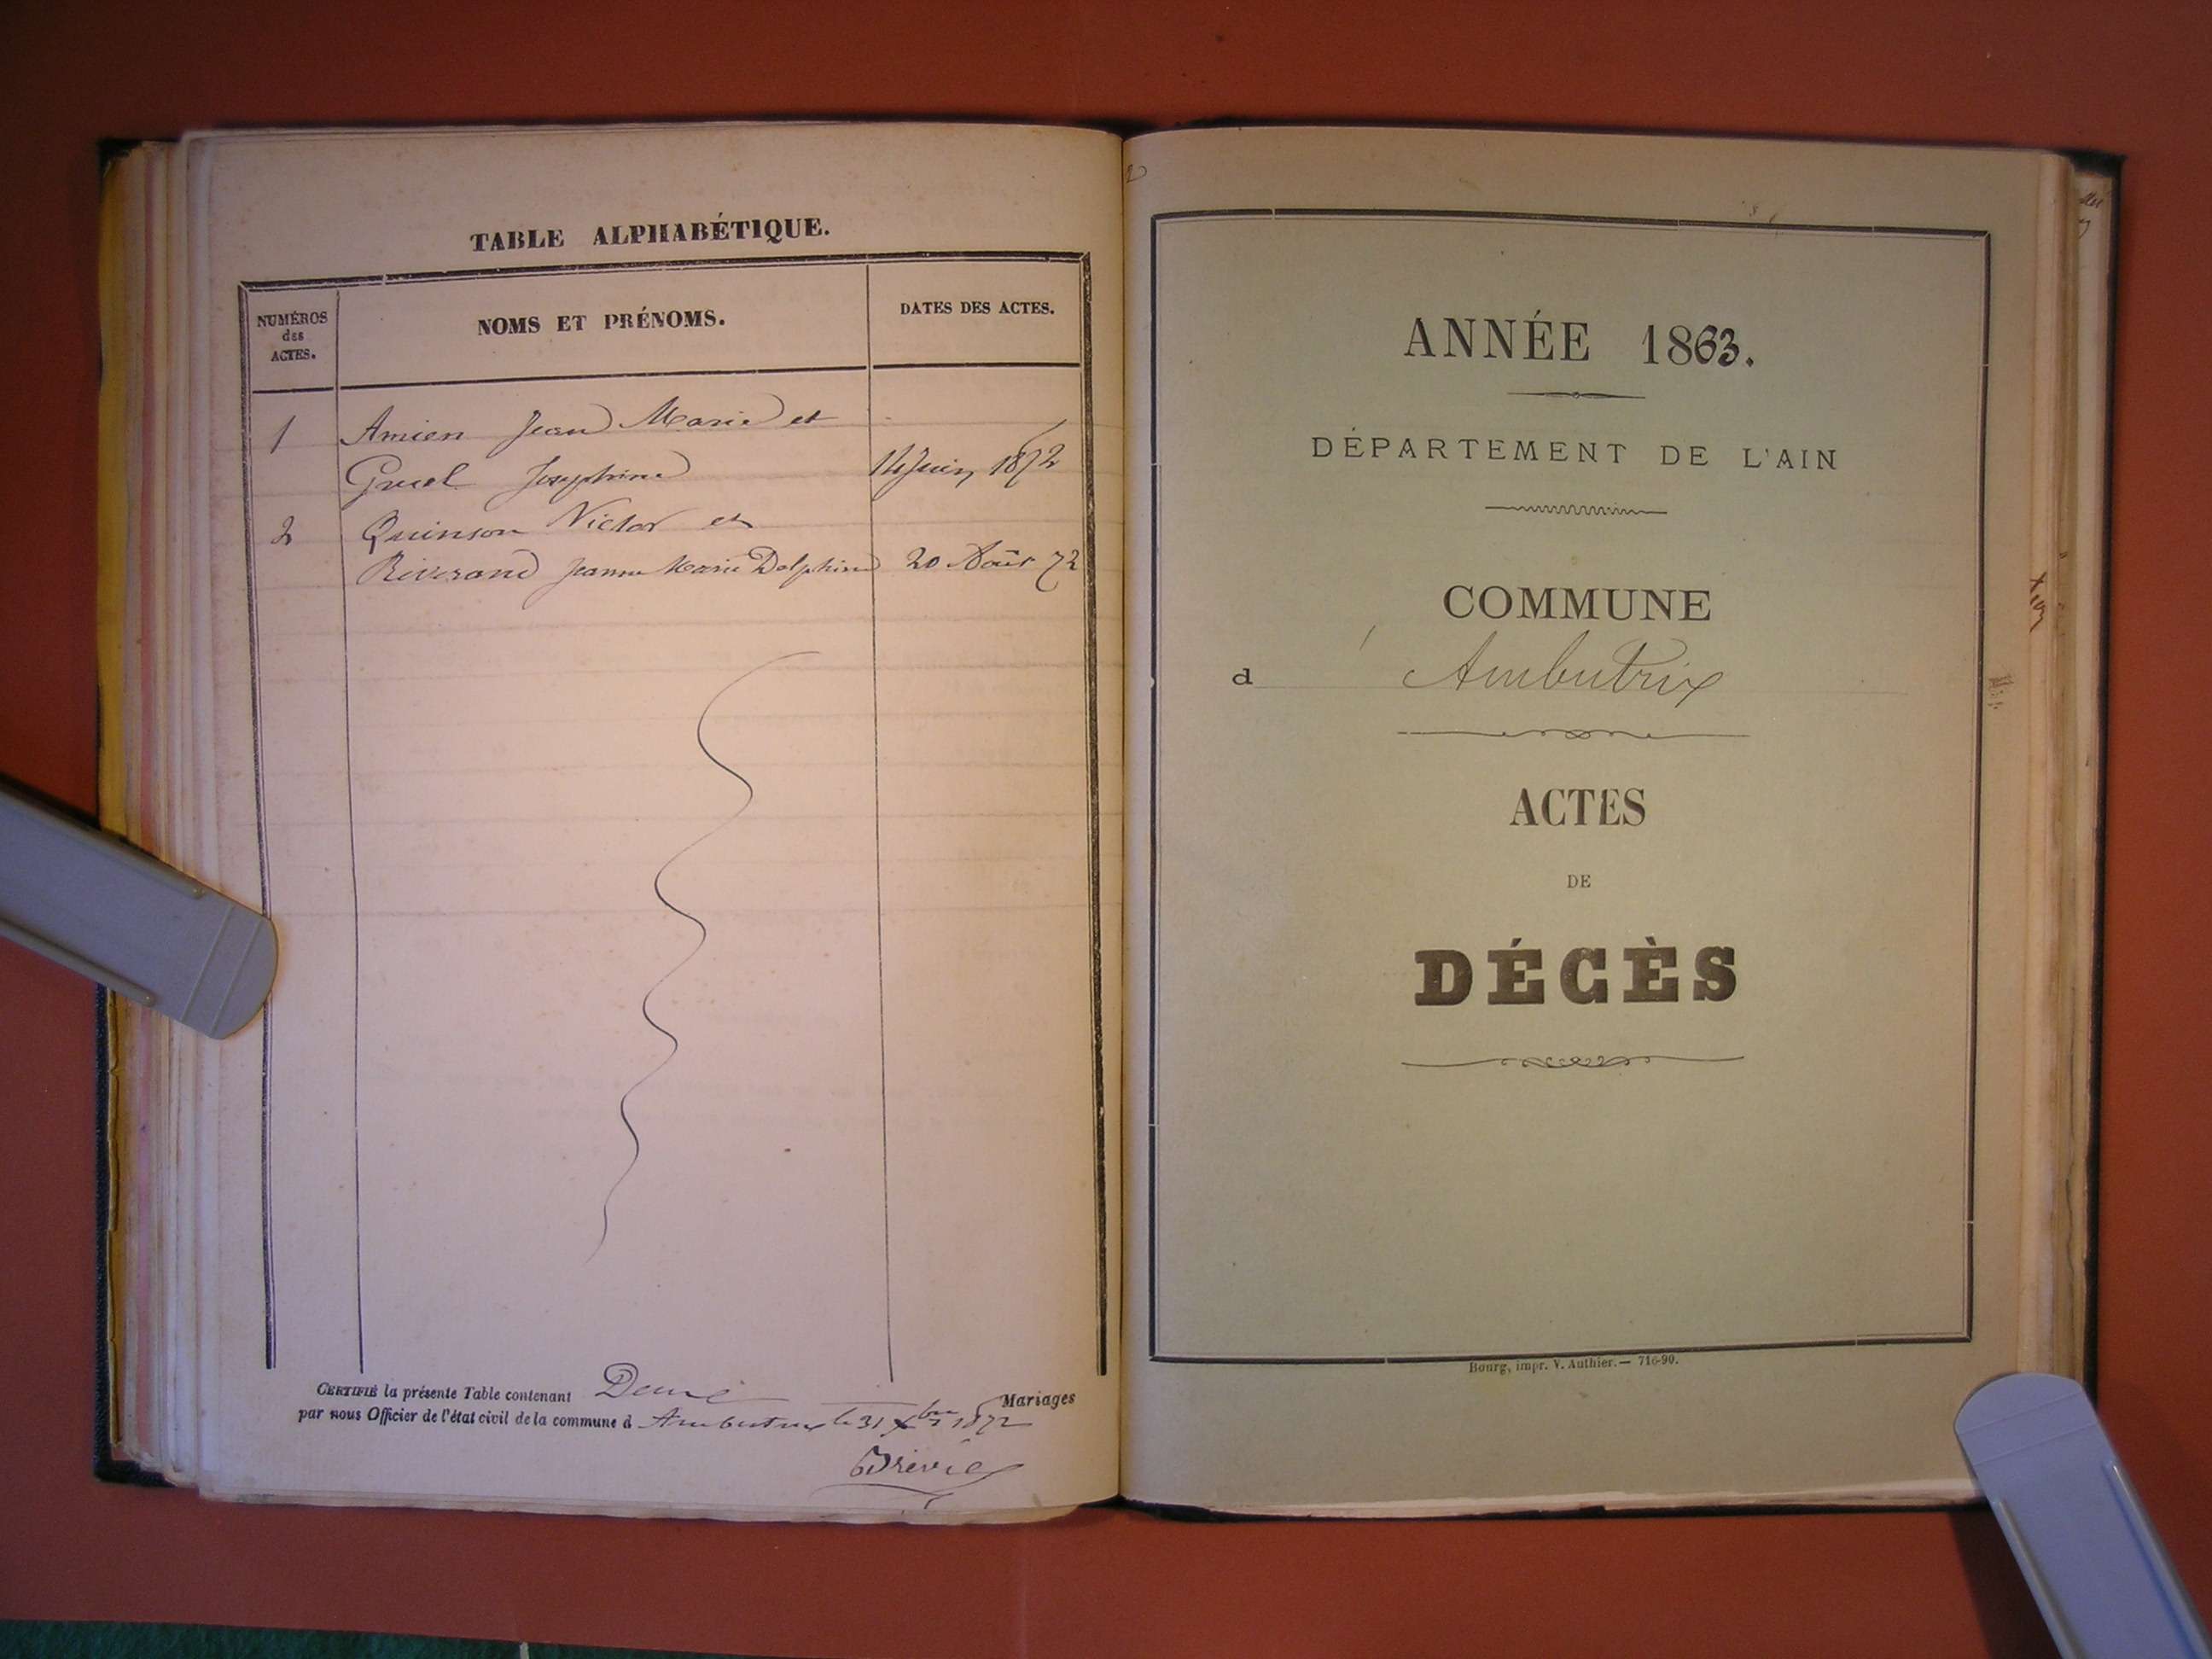 TABLE ALPHABÉTIQUE.
NUMÉROS
des
ACTES.
NOMS ET PRÉNOMS.
DATES DES ACTES.
1 Amien Jean Marie et
Gruel Josephine 14 Juin 1872
2 Quinson Victor et
Riverand Jeanne Marie Delphine 20 Août 72
CERTIFIÉ la présente Table contenant Deux Mariages
par nous Officier de l'état civil de la commune d Ambutrix le 31 Xbre 1872
ANNÉE 1863.
DÉPARTEMENT DE L'AIN
COMMUNE
d' Ambutrix
ACTES
DE
DÉCÈS
Bourg, impr. V. Authier. — 716-90.